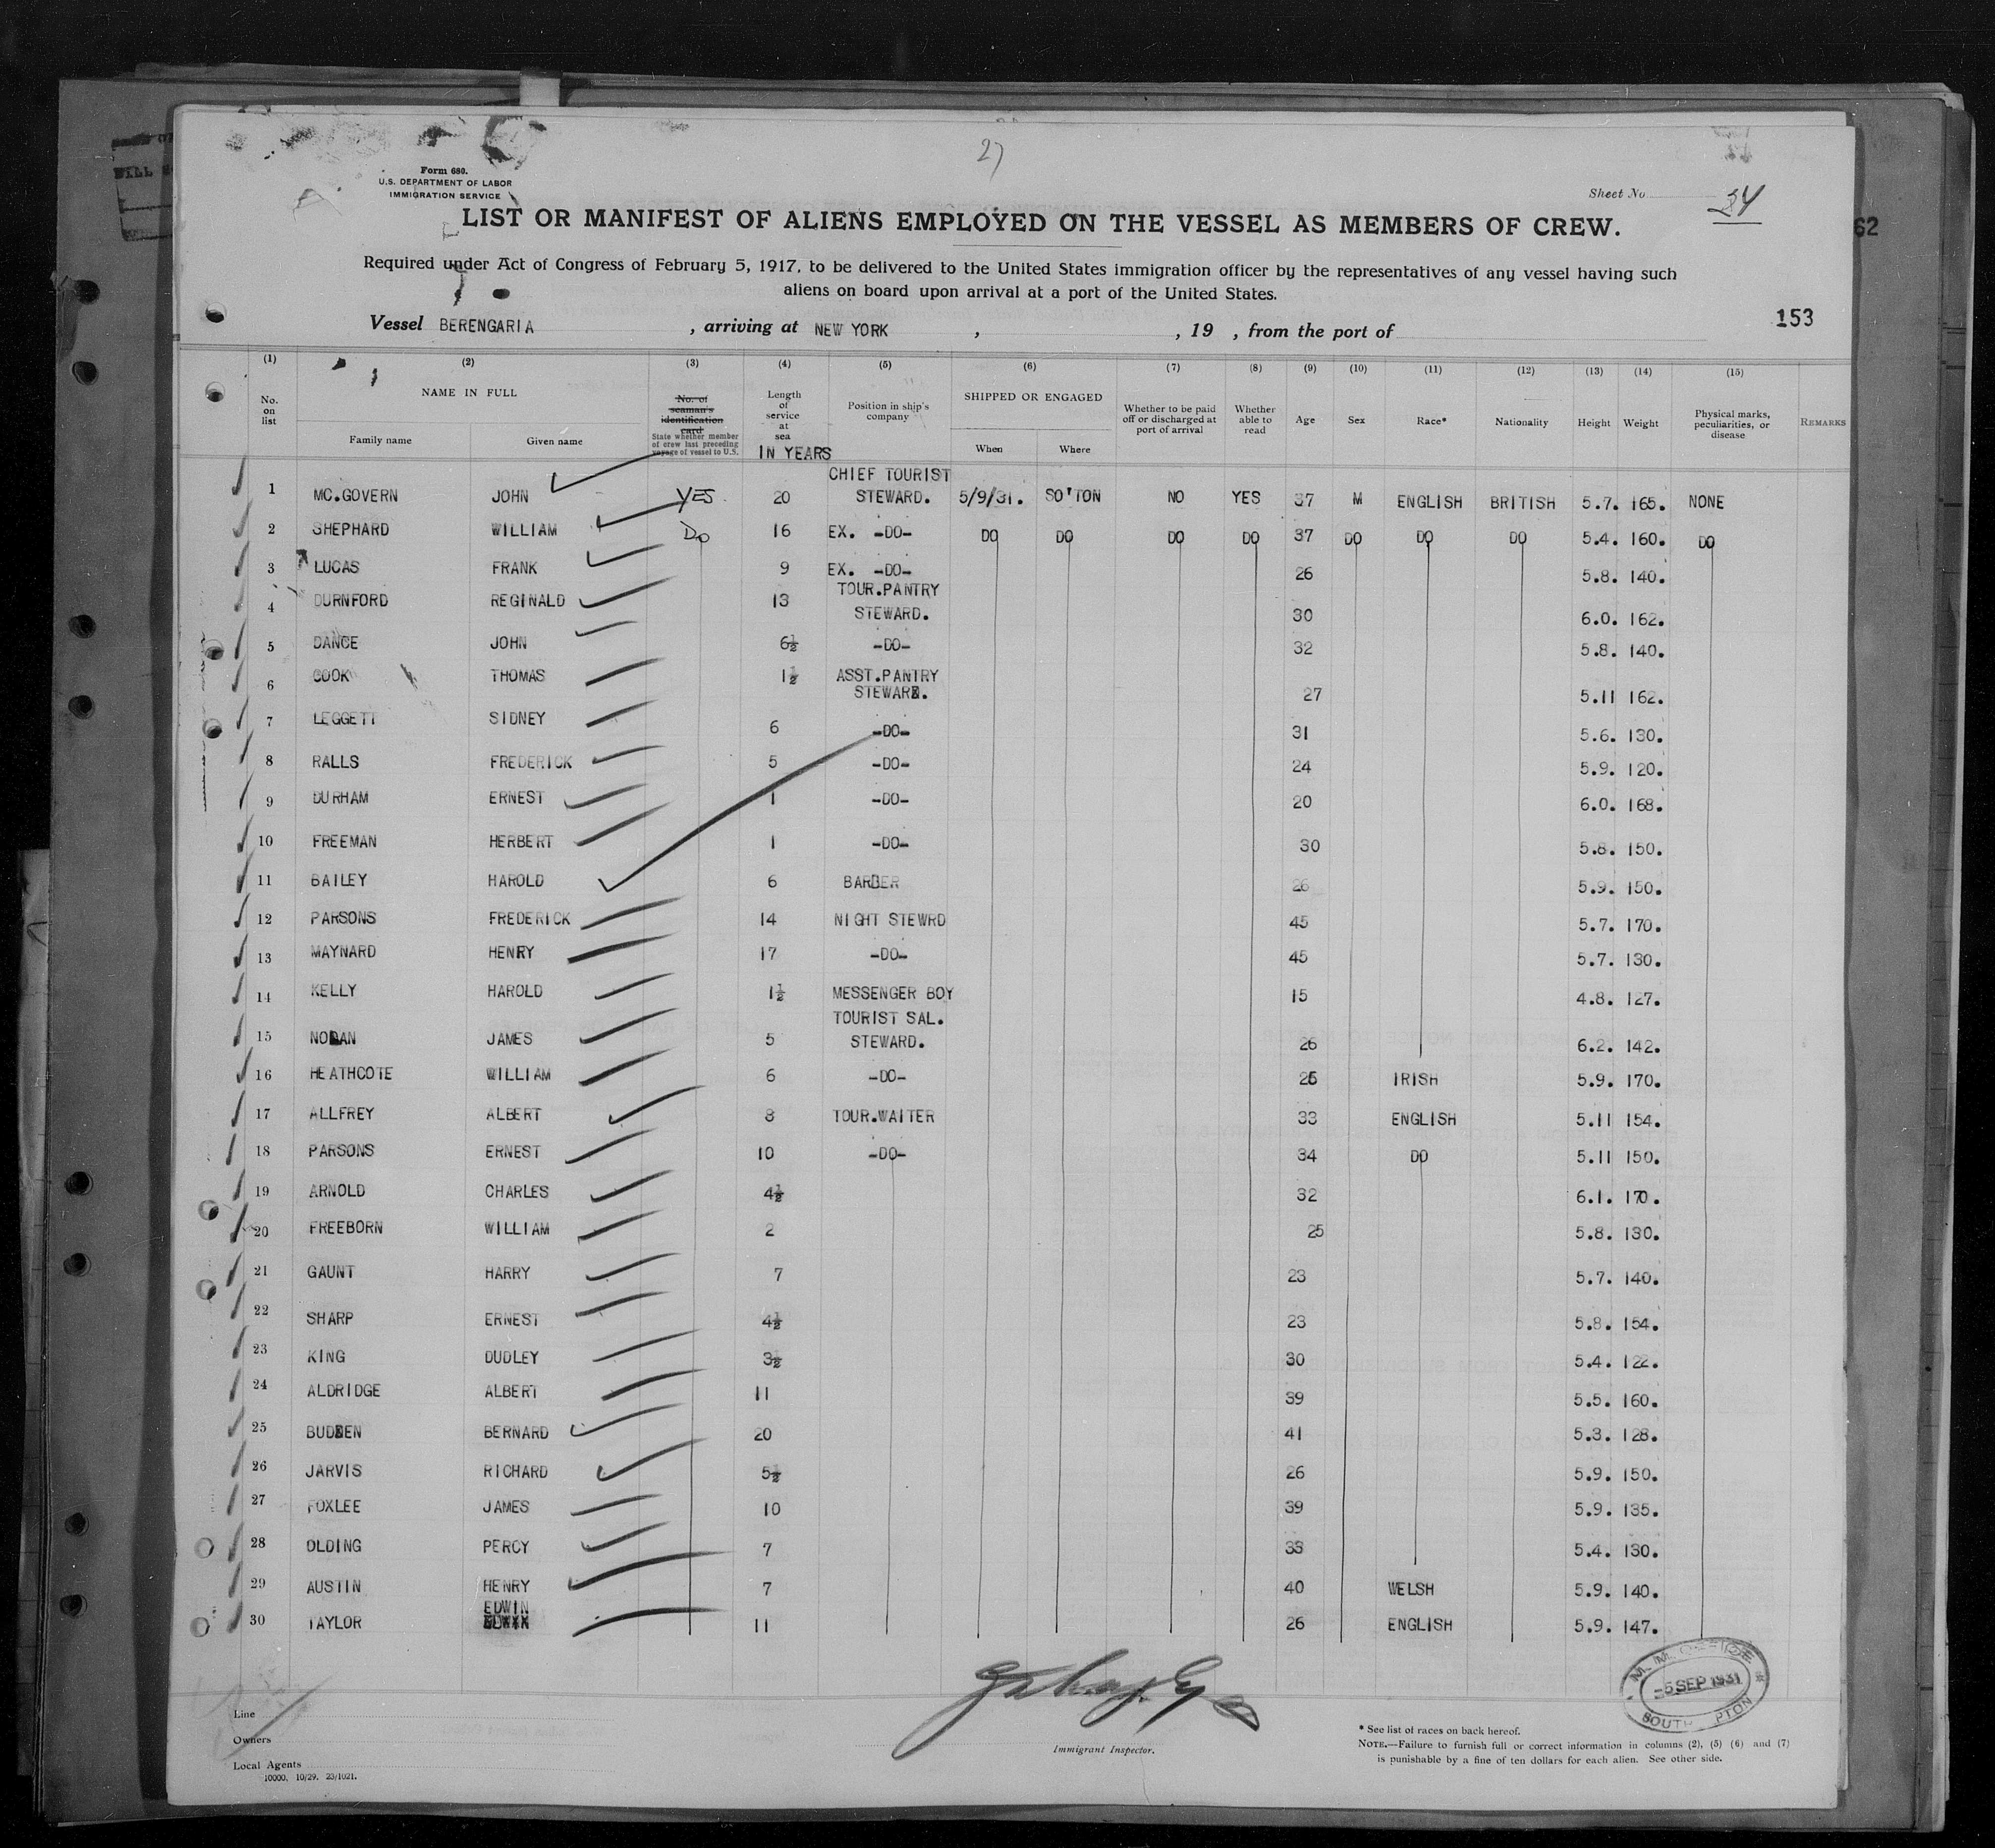 27
Form 680.
U.S. DEPARTMENT OF LABOR
IMMIGRATION SERVICE
Sheet No 34
LIST OR MANIFEST OF ALIENS EMPLOYED ON THE VESSEL AS MEMBERS OF CREW.
62
Required under Act of Congress of February 5, 1917, to be delivered to the United States immigration officer by the representatives of any vessel having such
aliens on board upon arrival at a port of the United States.
153
Vessel BERENGARIA , arriving at NEW YORK , , 19 , from the port of
(1) (2) (3) (4) (5) (6) (7) (8) (9) (10) (11) (12) (13) (14) (15)
No. on list NAME IN FULL Family name Given name No. of seaman's identification card State whether member of crew last preceding voyage of vessel to U.S. Length of service at sea IN YEARS Position in ship's company SHIPPED OR ENGAGED When Where Whether to be paid off or discharged at port of arrival Whether able to read Age Sex Race* Nationality Height Weight Physical marks, peculiarities, or disease REMARKS
CHIEF TOURIST
1 MC.GOVERN JOHN YES 20 STEWARD. 5/9/31. SO'TON NO YES 37 M ENGLISH BRITISH 5.7. 165. NONE
2 SHEPHARD WILLIAM Do 16 EX. -DO- DO DO DO DO 37 DO DO DO 5.4. 160. DO
3 LUCAS FRANK 9 EX. -DO- 26 5.8. 140.
TOUR.PANTRY
4 DURNFORD REGINALD 13 STEWARD. 30 6.0. 162.
5 DANCE JOHN 6½ -DO- 32 5.8. 140.
6 COOK THOMAS 1½ ASST.PANTRY
STEWARD. 27 5.11 162.
7 LEGGETT SIDNEY 6 -DO- 31 5.6. 130.
8 RALLS FREDERICK 5 -DO- 24 5.9. 120.
9 DURHAM ERNEST 1 -DO- 20 6.0. 168.
10 FREEMAN HERBERT 1 -DO- 30 5.8. 150.
11 BAILEY HAROLD 6 BARBER 26 5.9. 150.
12 PARSONS FREDERICK 14 NIGHT STEWRD 45 5.7. 170.
13 MAYNARD HENRY 17 -DO- 45 5.7. 130.
14 KELLY HAROLD 1½ MESSENGER BOY 15 4.8. 127.
TOURIST SAL.
15 NOLAN JAMES 5 STEWARD. 26 6.2. 142.
16 HEATHCOTE WILLIAM 6 -DO- 25 IRISH 5.9. 170.
17 ALLFREY ALBERT 8 TOUR.WAITER 33 ENGLISH 5.11 154.
18 PARSONS ERNEST 10 -DO- 34 DO 5.11 150.
19 ARNOLD CHARLES 4½ 32 6.1. 170.
20 FREEBORN WILLIAM 2 25 5.8. 130.
21 GAUNT HARRY 7 23 5.7. 140.
22 SHARP ERNEST 4½ 23 5.8. 154.
23 KING DUDLEY 3½ 30 5.4. 122.
24 ALDRIDGE ALBERT 11 39 5.5. 160.
25 BUDDEN BERNARD 20 41 5.3. 128.
26 JARVIS RICHARD 5½ 26 5.9. 150.
27 FOXLEE JAMES 10 39 5.9. 135.
28 OLDING PERCY 7 33 5.4. 130.
29 AUSTIN HENRY 7 40 WELSH 5.9. 140.
EDWIN
30 TAYLOR 11 26 ENGLISH 5.9. 147.
M.M. OFFICE
-5 SEP 1931
Line
Owners
Local Agents
10000, 10/29. 23/1021.
Immigrant Inspector.
* See list of races on back hereof.
NOTE.—Failure to furnish full or correct information in columns (2), (5) (6) and (7)
is punishable by a fine of ten dollars for each alien. See other side.